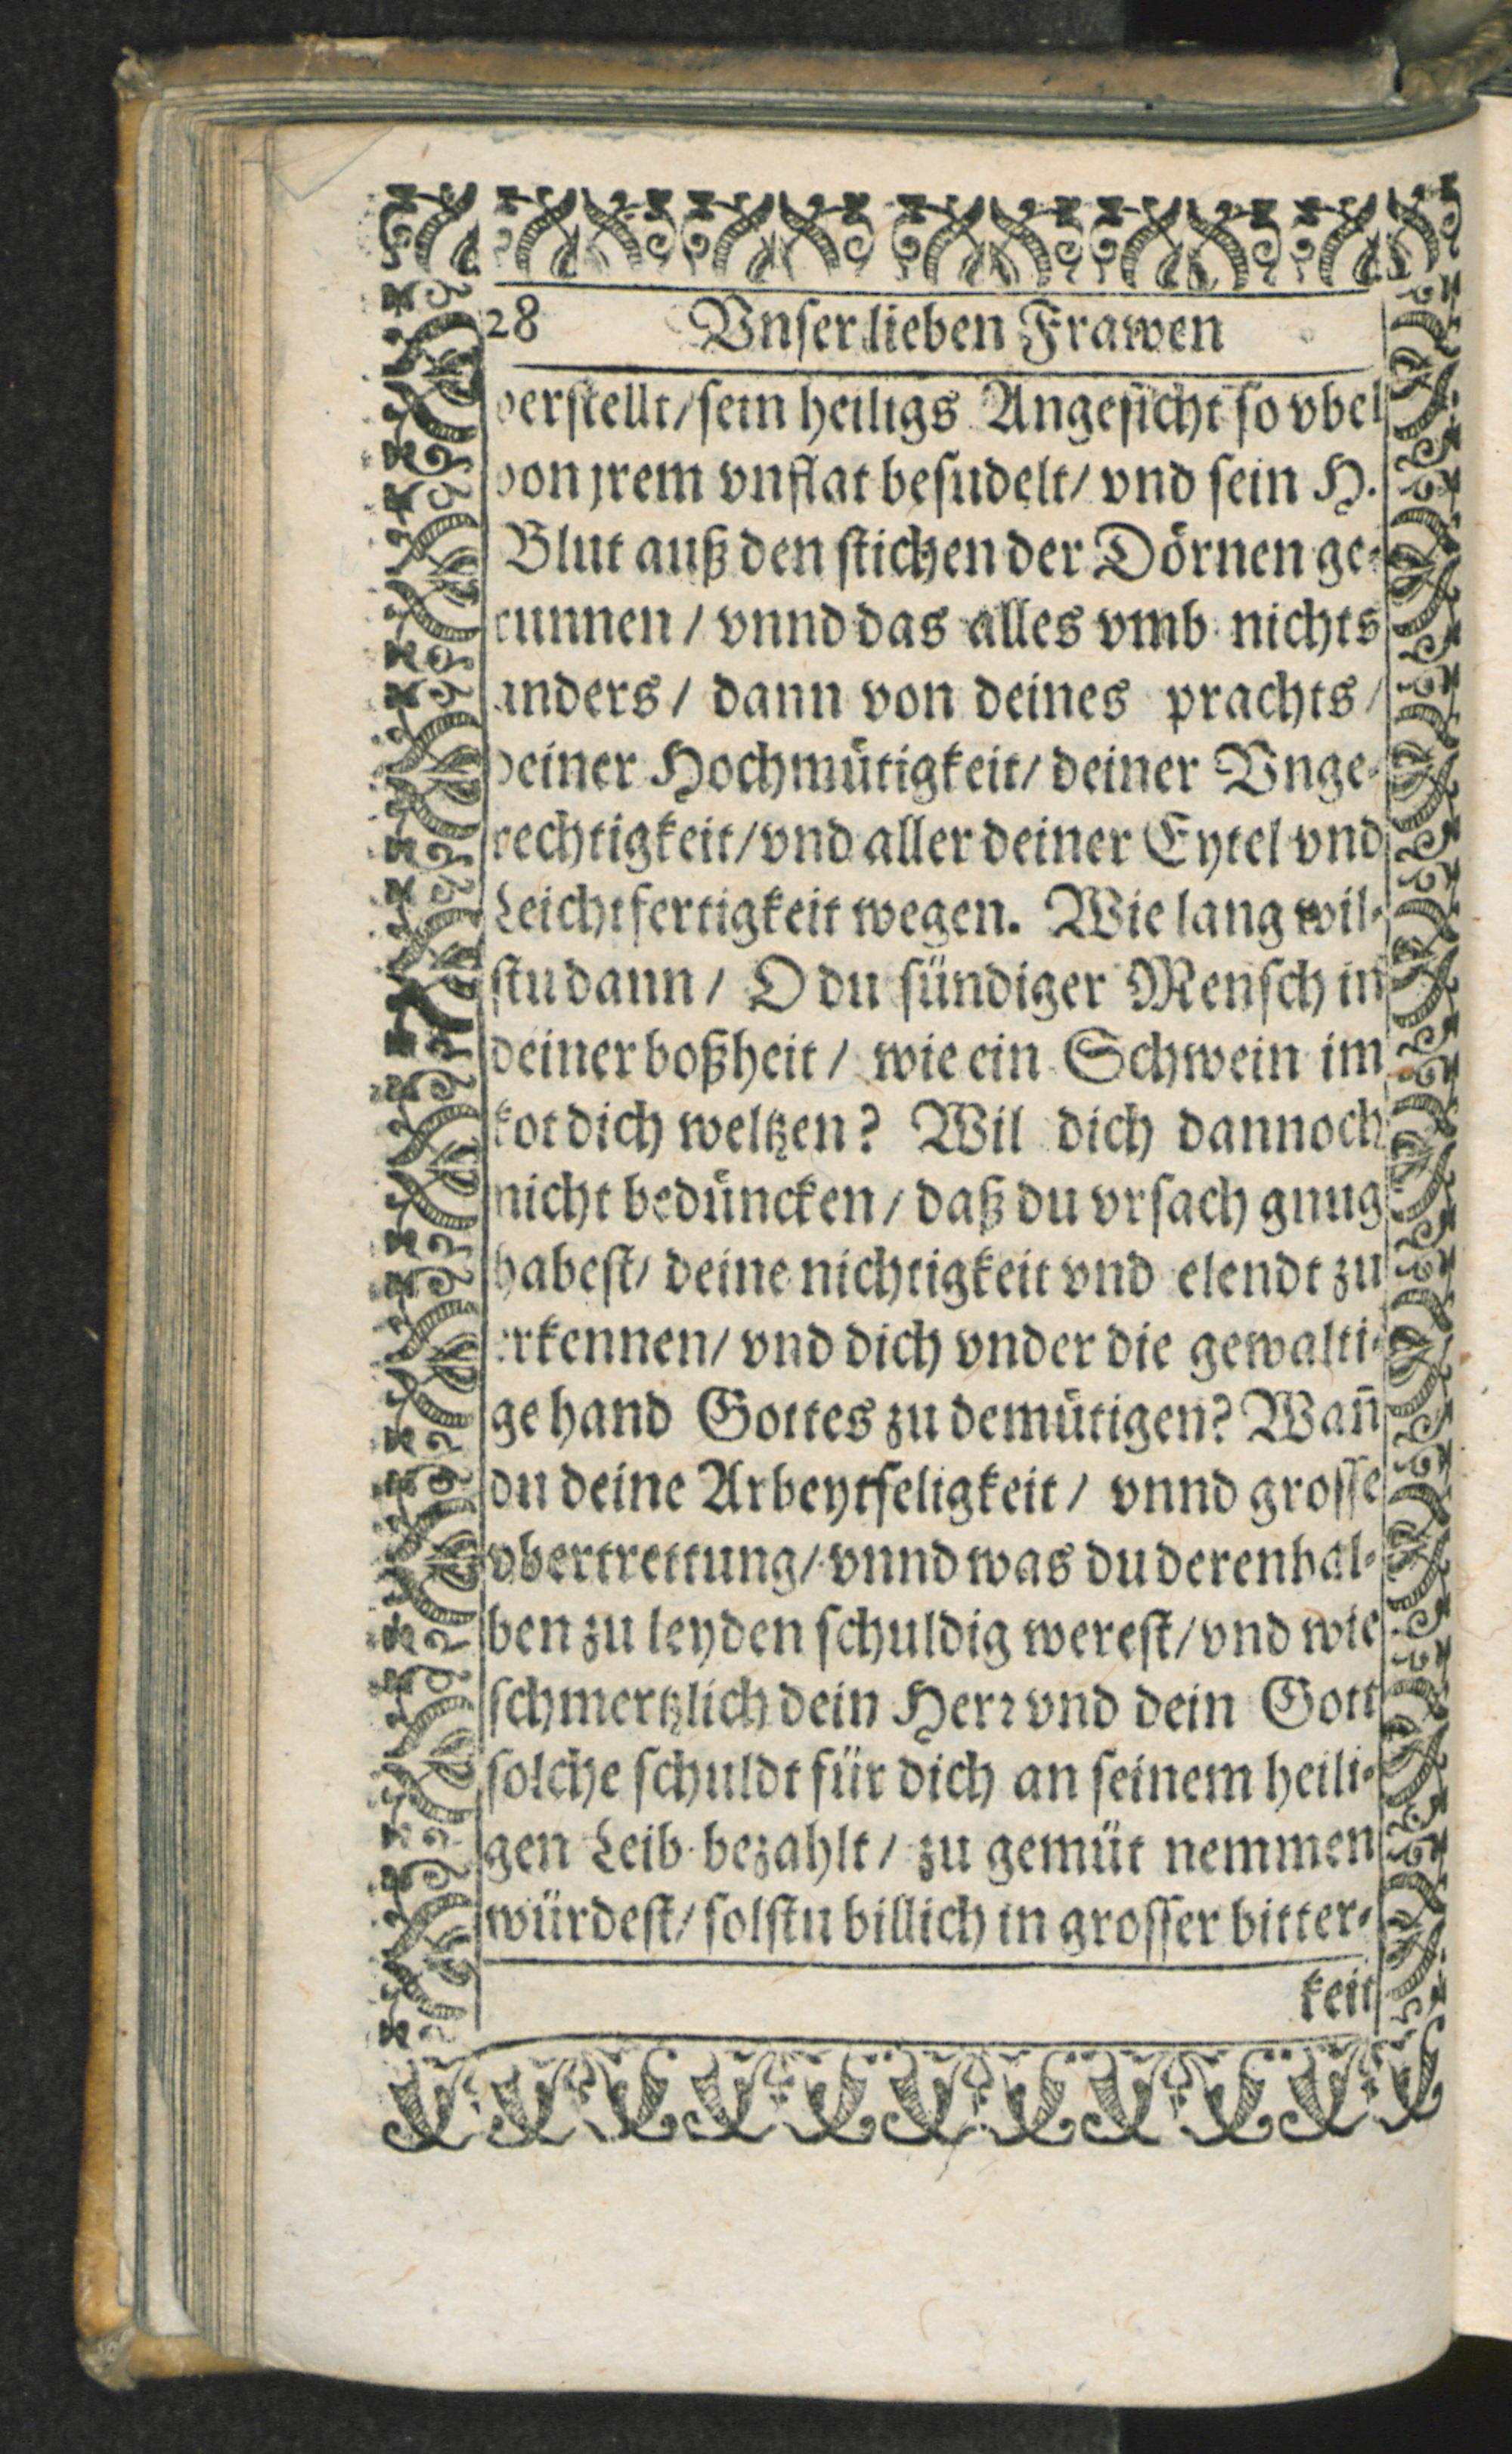 28 Vnser lieben Frawen
verstellt/ sein heiligs Angesicht so vbel
von jrem vnflat besudelt/ vnd sein H.
Blut auß den stichen der Dörnen ge-
runnen/ vnnd das alles vmb nichts
anders/ dann von deines prachts/
deiner Hochmütigkeit/ deiner Vnge-
rechtigkeit/ vnd aller deiner Eytel vnd
Leichtfertigkeit wegen. Wie lang wil-
stu dann/ O du sündiger Mensch in
deiner boßheit/ wie ein Schwein im
kot dich weltzen? Wil dich dannoch
nicht bedüncken/ daß du vrsach gnug
habest/ deine nichtigkeit vnd elendt zu
erkennen/ vnd dich vnder die gewalti-
ge hand Gottes zu demütigen? Wañ
du deine Arbeytseligkeit/ vnnd grosse
vbertrettung/ vnnd was du derenhal-
ben zu leyden schuldig werest/ vnd wie
schmertzlich dein Herr vnd dein Gott
solche schuldt für dich an seinem heili-
gen Leib bezahlt/ zu gemüt nemmen
würdest/ solstu billich in grosser bitter-
keit